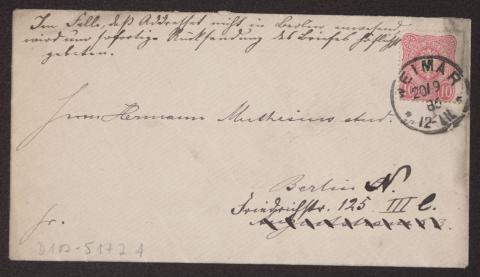 Im Falle, daß Addressat nicht in Berlin anwesend,
wird um sofortige Rücksendung des Briefes höflichst
gebeten.
WEIMAR
20/9
83
12-1N.
10
Herrn Hermann Muthesius stud.
Berlin N.
Friedrichstr. 125 III l.
fr.
D102-5172 A